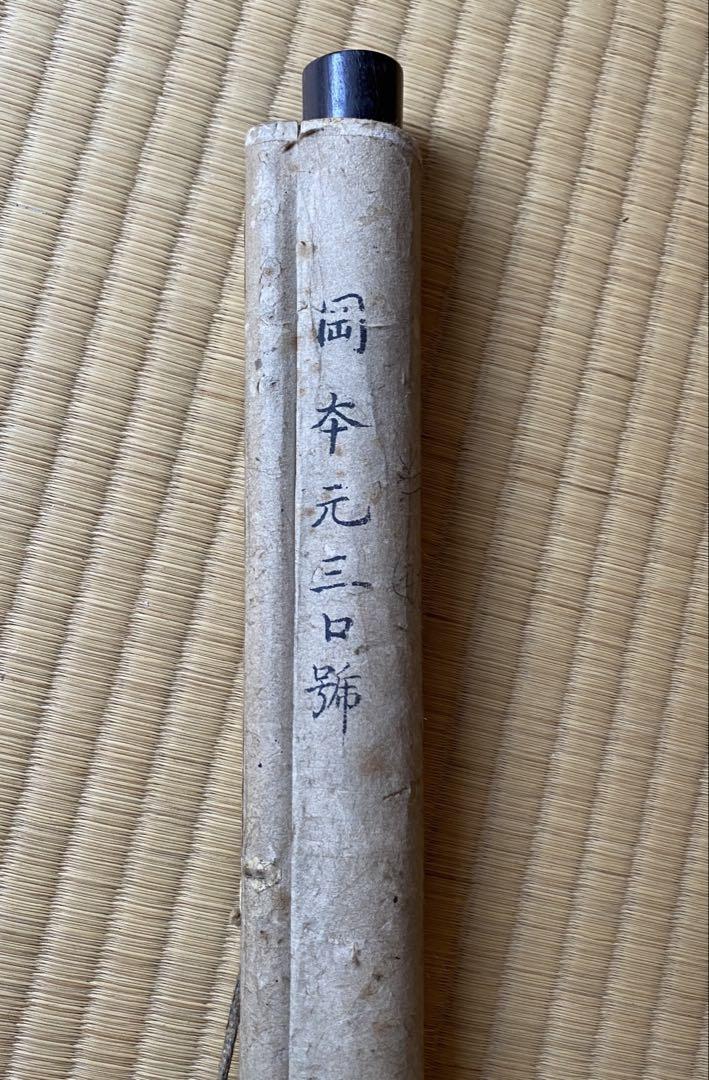 岡本元三口號